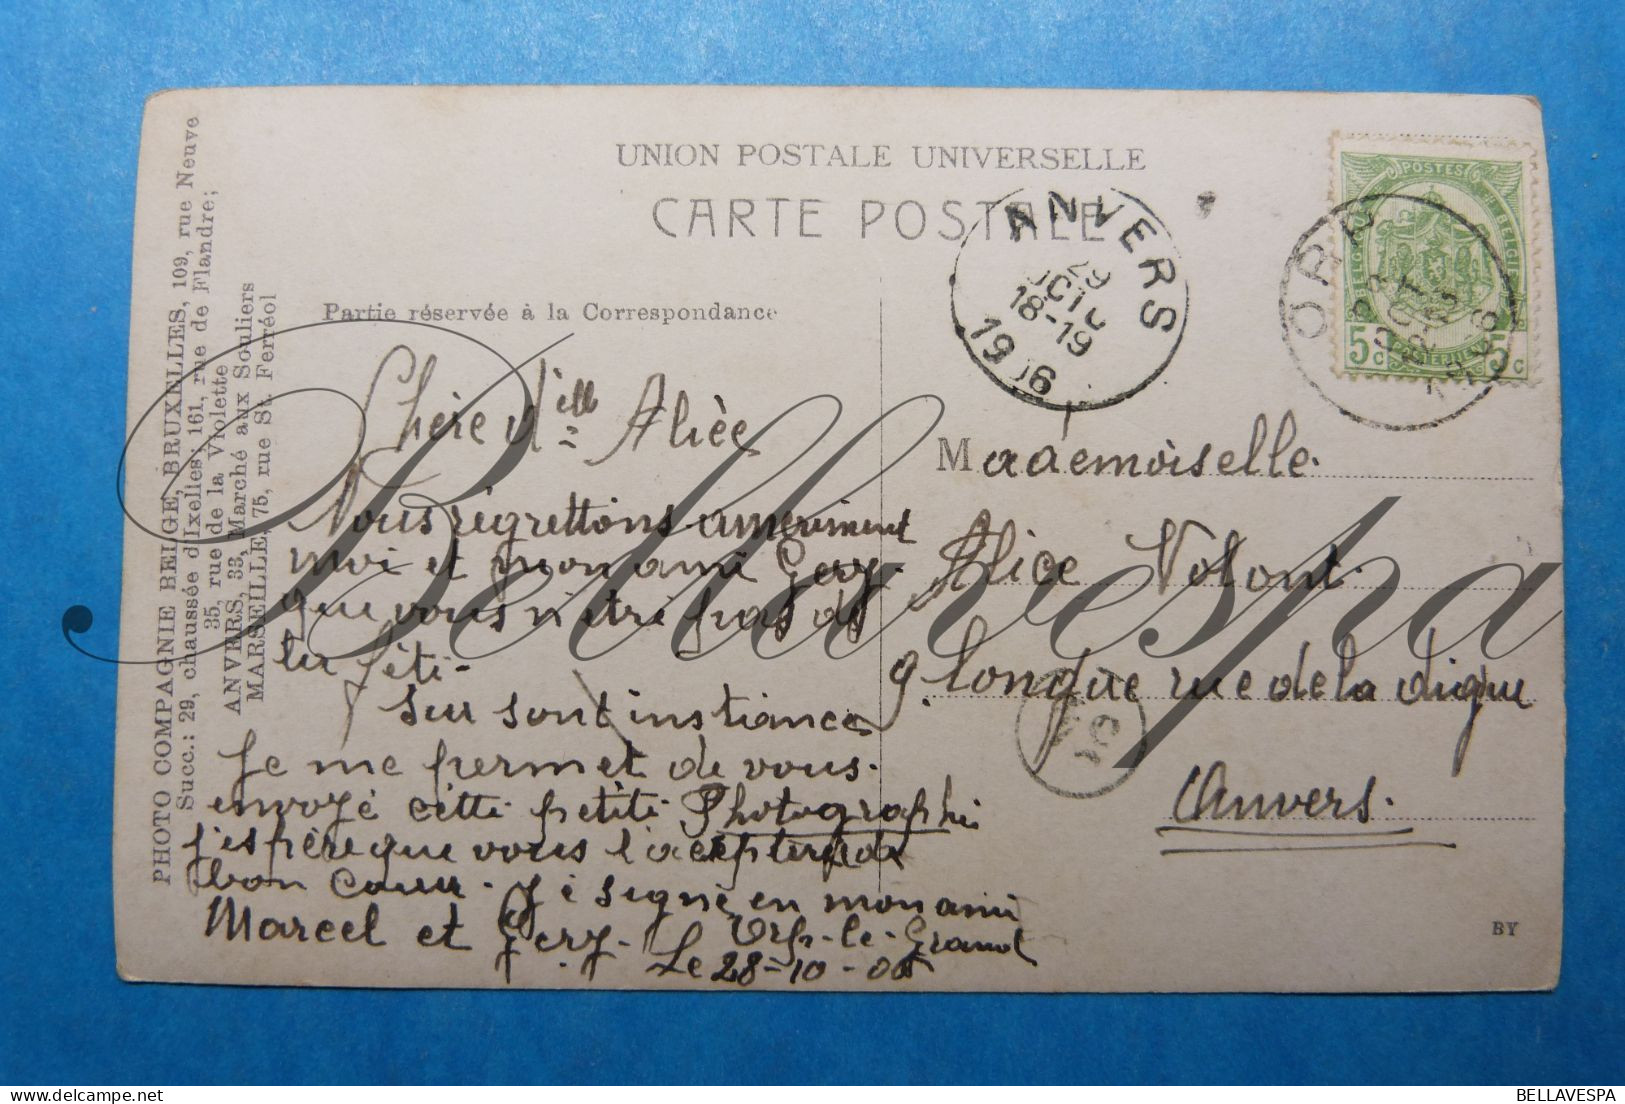 UNION POSTALE UNIVERSELLE
CARTE POSTALE
PHOTO COMPAGNIE BELGE, BRUXELLES, 109, rue Neuve
Succ.: 29, chaussée d'Ixelles; 161, rue de Flandre;
35, rue de la Violette
ANVERS, 33, Marché aux Souliers
MARSEILLE, 75, rue St. Ferréol
Partie réservée à la Correspondance
Chère Mlle Alièe
Nous régrettons amerement
moi et mon ami Gery.
que vous n'etre pas de
la féte -
Sur sont instiance
Je me permet de vous.
envoyé cétte petite Photographie
j'espère que vous l'accepterez de
bon cœur. Je signe en mon ami
Marcel et Gery. Orp-le-Grand
Le 28-10-06
ANVERS
29
OCT
18-19
1906
ORP
POSTES
BELGIQUE
BELGIE
5c 5c
Mademoiselle.
Alice Volont.
9. longue rue de la digue
Anvers.
BY
Bellavespa
BELLAVESPA